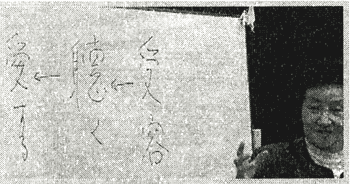 受容
←
聴く
←
愛する